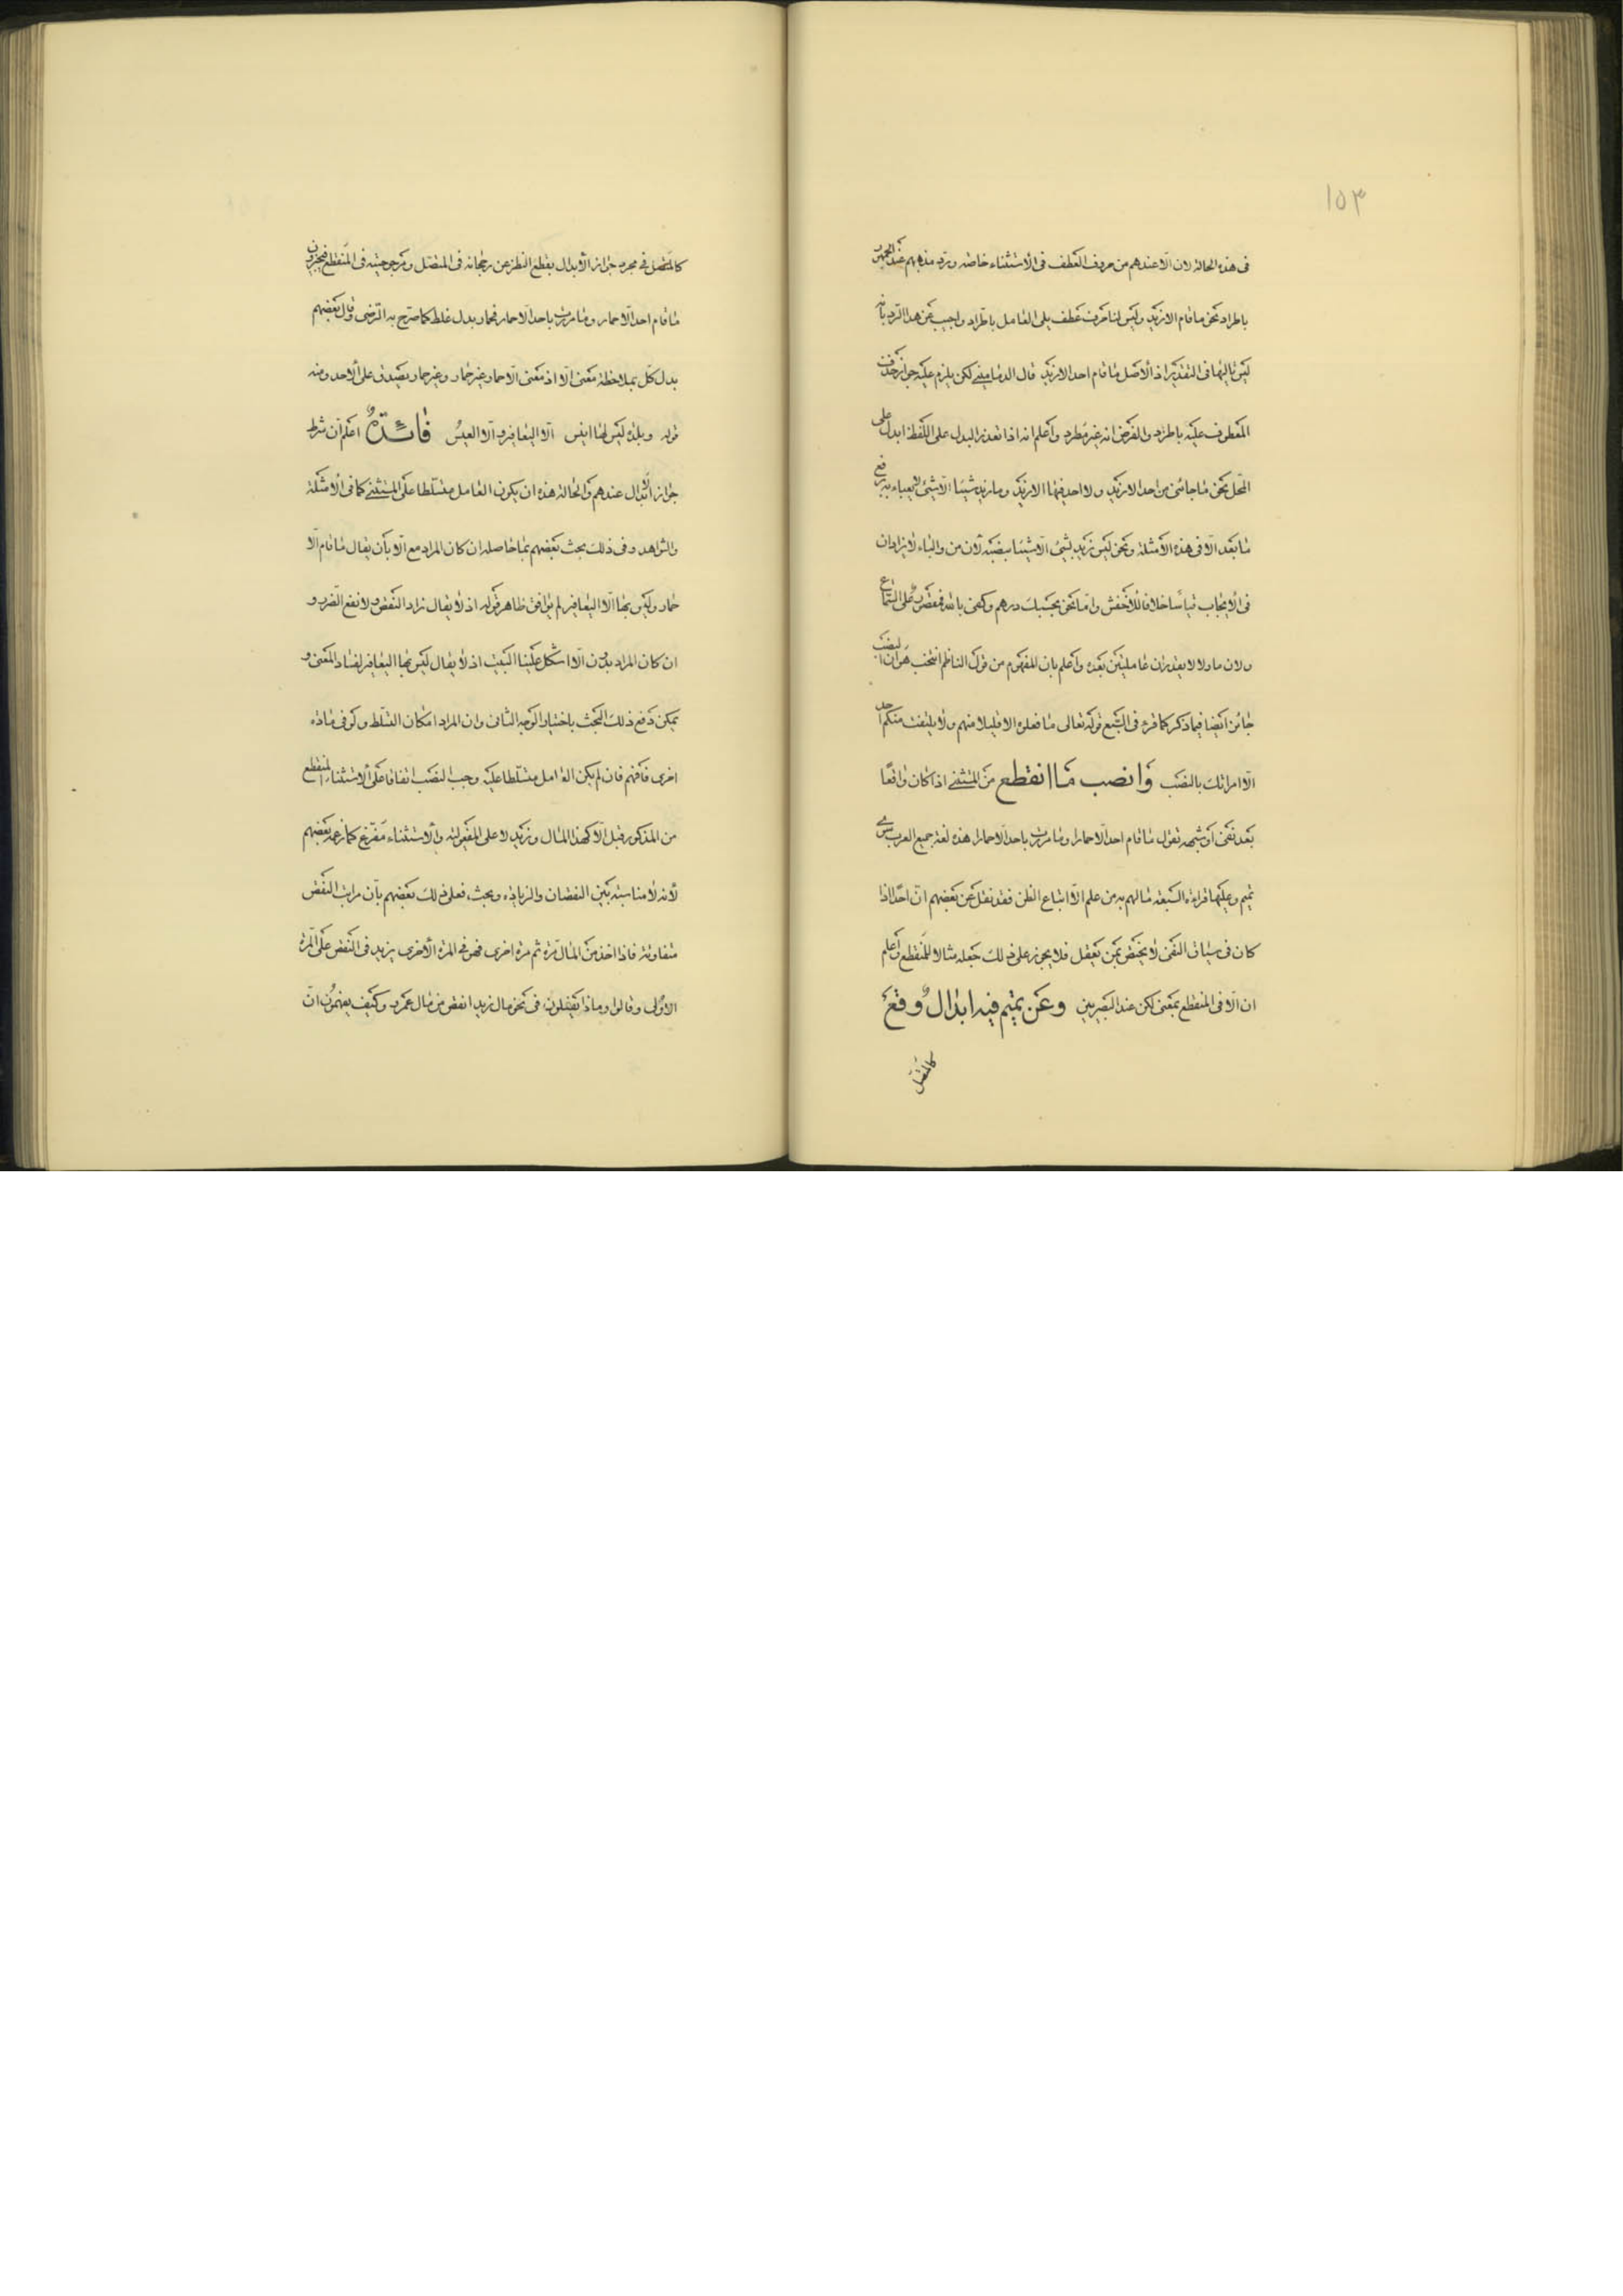 ١٥٣
فى هذه الحالة لان الّا عندهم من حروف العطف فى الاستثناء خاصّة ويردّ مذهبهم عند الجمهور
باطراد نحو ما قام الا زيد وليس لنا حرف عطف يلى العامل باطّراد واجيب عن هذا الرد بانه
ليس تاليها فى التقدير اذ الأصل ما قام احد الا زيد قال الدمامينى لكن يلزم عليه جواز حذف
المعطوف عليه باطراد والفرض انه غير مطرد واعلم انه اذا تعذر البدل على اللفظ ابدل على
المحل نحو ما جائنى من احد الا زيد ولا احد فيها الا زيد وما زيد شيئا الّا شئ لا يعباء به برفع
ما بعد الّا فى هذه الأمثلة ونحو ليس زيد بشئ الّا شيئا بنصبه لان من والباء لا يزادان
فى الايجاب قياسًا خلافا للاخفش وامّا نحو بحسبك درهم وكفى بالله فمقصور على السّماع
ولان ما ولا لا يقدران عاملتين بعده واعلم بان المفهوم من قول الناظم انتخب هو ان النصب
جائز ايضا فيما ذكر كما قرء فى السّبع قوله تعالى ما فعلوه الا قليلا منهم ولا يلتفت منكم احد
الّا امراتك بالنصب وَانصب مَا انقطع من المستثنى اذا كان واقعًا
بعد نفى أو شبهه تقول ما قام احد الّا حمارا وما مررت باحد الّا حمارا هذه لغة جميع العرب سوى
تميم وعليها قراءة السبعة ما لهم به من علم الّا اتباع الظن فقد نقل عن بعضهم انّ احدًا اذا
كان فى سياق النفى لا يختص بمن يعقل فلا يجوز على ذلك جعله مثالا للمنقطع واعلم
ان الّا فى المنقطع بمعنى لكن عند البصريين وعَن تميم فيه ابدالٌ وقعَ
كالمتصل
كالمتصل فى مجرد جواز الأبدال بقطع النظر عن رجحانه فى المتصل ومرجوحيته فى المنقطع فيجوزون
ما قام احد الّا حمار وما مررت باحد الّا حمار فحمار بدل غلط كما صرح به الرضى وقال بعضهم
بدل كل بملاحظة معنى الّا اذ معنى الّا حمار غير حمار وغير حمار يصدق على الاحد ومنه
قوله وبلدة ليس لها انيس الّا اليعافير والّا العيسُ فائدةٌ اعلم أن شرط
جواز الابدال عندهم والحالة هذه ان يكون العامل متسلطا على المستثنى كما فى الامثلة
والشواهد وفى ذلك بحث بعضهم بما حاصله ان كان المراد مع الّا بأن يقال ما قام الّا
حمار وليس بها الّا اليعافير لم يوافق ظاهر قوله اذ لا يقال زاد النقص ولا نفع الضرر و
ان كان المراد بدون الّا اشكل علينا البيت اذ لا يقال ليس بها اليعافير لفساد المعنى و
يمكن دفع ذلك البحث باختيار الوجه الثانى وان المراد امكان التسلط ولو فى مادة
اخرى فافهم فان لم يكن العامل متسلطا عليه وجب النصب اتفاقا على الاستثناء المنقطع
من المذكور قبل الّا كهذا المال وزيد لا على المفعولية والاستثناء مفرّغ كما زعمه بعضهم
لأنه لا مناسبة بين النقصان والزيادة وبحث فعلى ذلك بعضهم بأن مراتب النقص
متفاوتة فاذا اخذ من المال مرة ثم مرة اخرى فهو فى المرة الاخرى يزيد فى النقص على المرة
الاولى وقالوا وماذا تفعلون فى نحو مال زيد انقص من مال عمرو وكيف يفهمون انّ